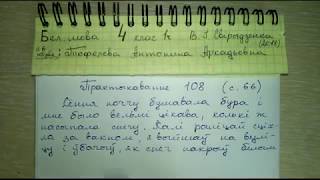 Бел. мова 4 клас ІІч. В. І. Свірыдзенка
Цімафеева Антаніна Аркадзьеўна
Практыкаванне 108 (с. 66)
ноччу бушавала бура і
мне было вельмі цікава, колькі ж
насыпала снегу. Калі раніцай сціх-
ла за акном, я выйшаў на вулі-
цу і ўбачыў, як снег накрыў белым